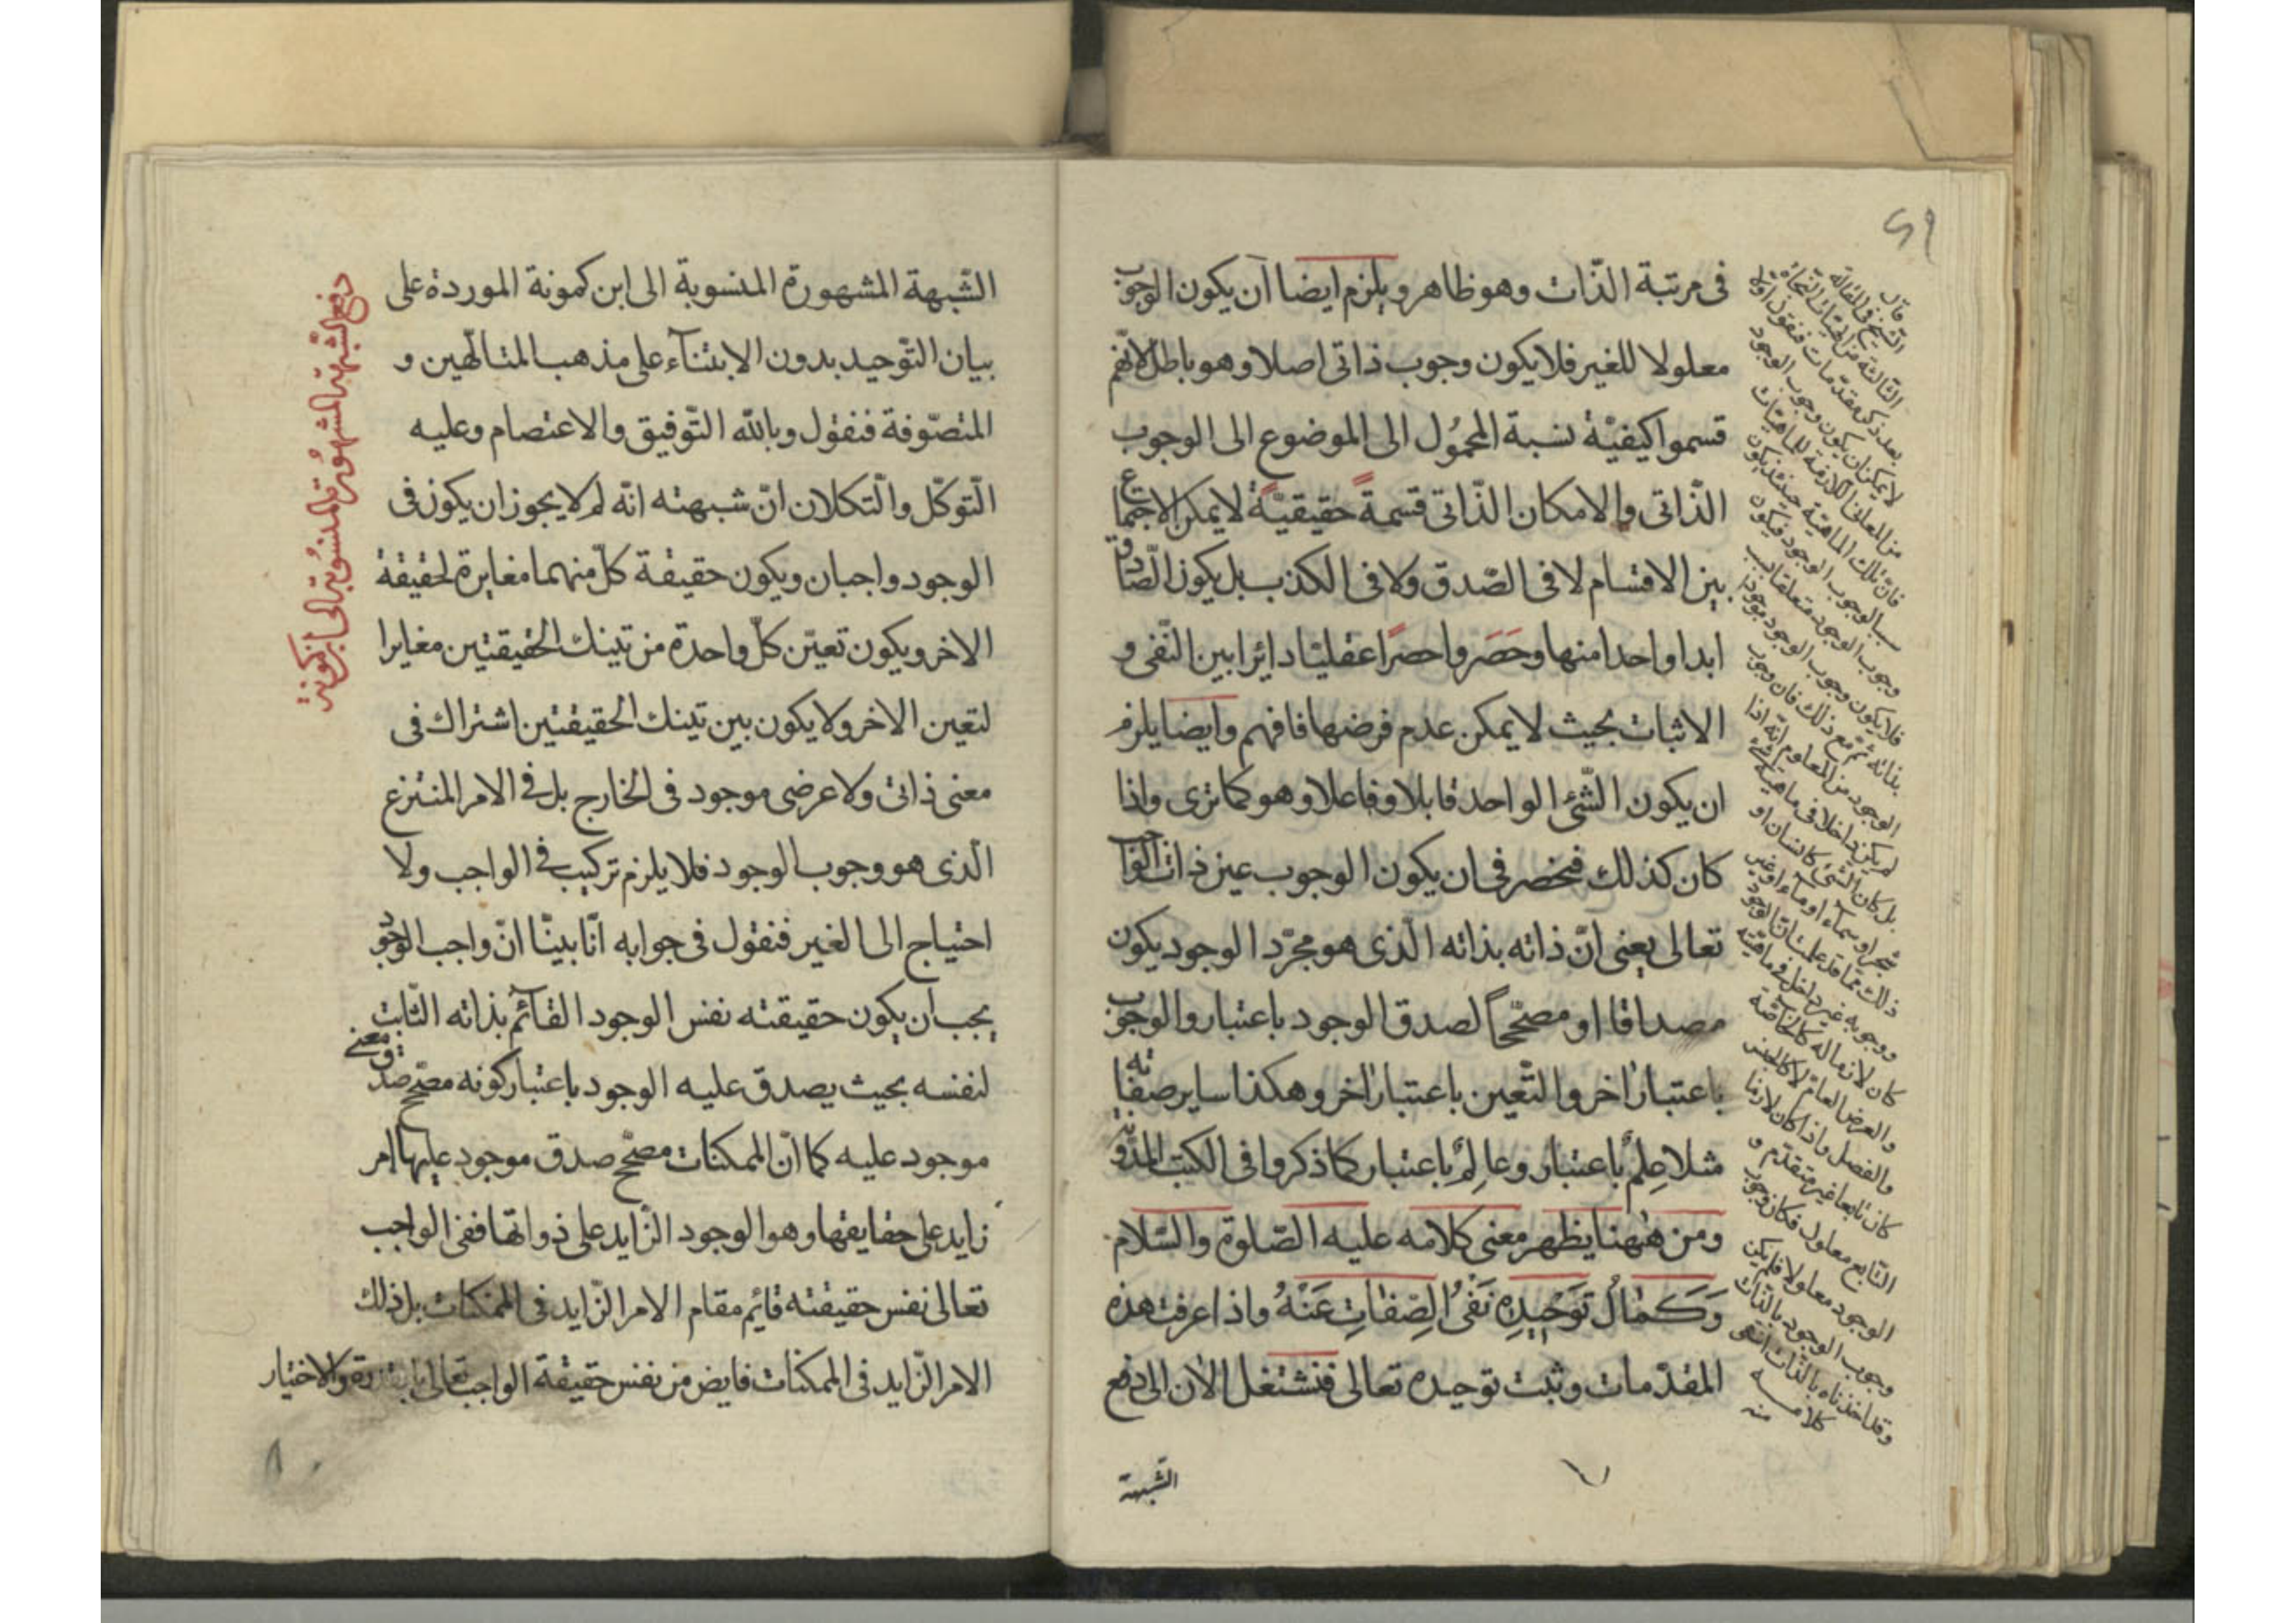 فى مرتبة الذّات وهو ظاهر ويلزم ايضا ان يكون الوجوب
معلولا للغير فلا يكون وجوب ذاتى اصلا وهو باطل لانّهم
قسموا كيفيّة نسبة المحمُول الى الموضوع الى الوجوب
الذّاتى والامكان الذّاتى قسمةً حقيقيّةً لا يمكن الاجتماع
بين الاقسام لا فى الصّدق ولا فى الكذب بل يكون الصّادق
ابدا واحدا منها وحَصَروا حصرًا عقليّا دائرا بين النّفى و
الاثبات بحيث لا يمكن عدم فرضها فافهم وايضا يلزم
ان يكون الشّئ الواحد قابلا وفاعلا وهو كما ترى واذا
كان كذلك فيخصر فى ان يكون الوجوب عين ذات الواجب
تعالى يعنى انّ ذاته بذاته الّذى هو مجرّد الوجود يكون
مصداقا او مصحّحاً لصدق الوجود باعتبار والوجوب
باعتبار اخر والتّعين باعتبار اخر وهكذا ساير صفاته
مثلا عِلمٌ باعتبار وعالِمٌ باعتبار كما ذكروا فى الكتب المدوّنة
ومن هٰهنا يظهر معنى كلامه عليه الصّلوة والسّلام
وَكَمٰالُ تَوَحْيدِهِ نَفْىُ الصِّفٰاتِ عَنْهُ واذا عرفت هذه
المقدّمات وثبت توحيده تعالى فنشتغل الان الى دفع
الشّبهة
قال
الشّيخ فى المقالة
الثّالثة من الهيّات الشّفاء
بعد ذكر مقدّمات فنقول اوّلا
لا يمكن ان يكون وجوب الوجود
من المعانى اللازمة للماهيّات
فانّ تلك الماهيّة حينئذ يكون
سببا لوجوب الوجود فيكون
وجوب الوجود متعلقا بسبب
فلا يكون وجوب الوجود موجودا
بذاته ثمّ مع ذلك فان وجوب
الوجود من المعلوم انّه اذا
لم يكن داخلا فى ماهيّة شئ
بل كان الشّئ كانسان او
شجر او سماء او ماء او غير
ذلك ممّا قد علمت انّ الوجود
ووجوبه غير داخل فى ماهيّته
كان لازما له كالخاصّة
والعرض العامّ لا كالجنس
والفصل واذا كان لازما
كان تابعا غير متقدّم و
التّابع معلول فكان وجوب
الوجود معلولا فلم يكن
وجوب الوجود بالذّات
وقد اخذناه بالذّات انتهى
كلامه
منه
الشّبهة المشهورة المنسوبة الى ابن كمونة الموردة على
بيان التّوحيد بدون الابتنآء على مذهب المتالّهين و
المتصّوفة فنقول وبالله التّوفيق والاعتصام وعليه
التّوكّل والتّكلان انّ شبهته انّه لم لا يجوز ان يكون فى
الوجود واجبان ويكون حقيقة كلّ منهما مغايرة لحقيقة
الاخر ويكون تعيّن كلّ واحدة من تينك الحقيقتين مغايرا
لتعين الاخر ولا يكون بين تينك الحقيقتين اشتراك فى
معنى ذاتى ولا عرضى موجود فى الخارج بل فى الامر المنتزع
الّذى هو وجوب الوجود فلا يلزم تركيب فى الواجب ولا
احتياج الى الغير فنقول فى جوابه انّا بيّنّا انّ واجب الوجود
يجب ان يكون حقيقته نفس الوجود القآئم بذاته الثّابت
لنفسه بحيث يصدق عليه الوجود باعتبار كونه مصحّح صدق معنى
موجود عليه كما انّ الممكنات مصحّح صدق موجود عليها امر
زايد على حقايقها وهو الوجود الزّايد على ذواتها ففى الواجب
تعالى نفس حقيقته قايم مقام الامر الزّايد فى الممكنات بل ذلك
الامر الزّايد فى الممكنات فايض من نفس حقيقة الواجب تعالى والاختيار
دفع الشّبهة المشهُورة المنسُوبة الى ابن كمونة